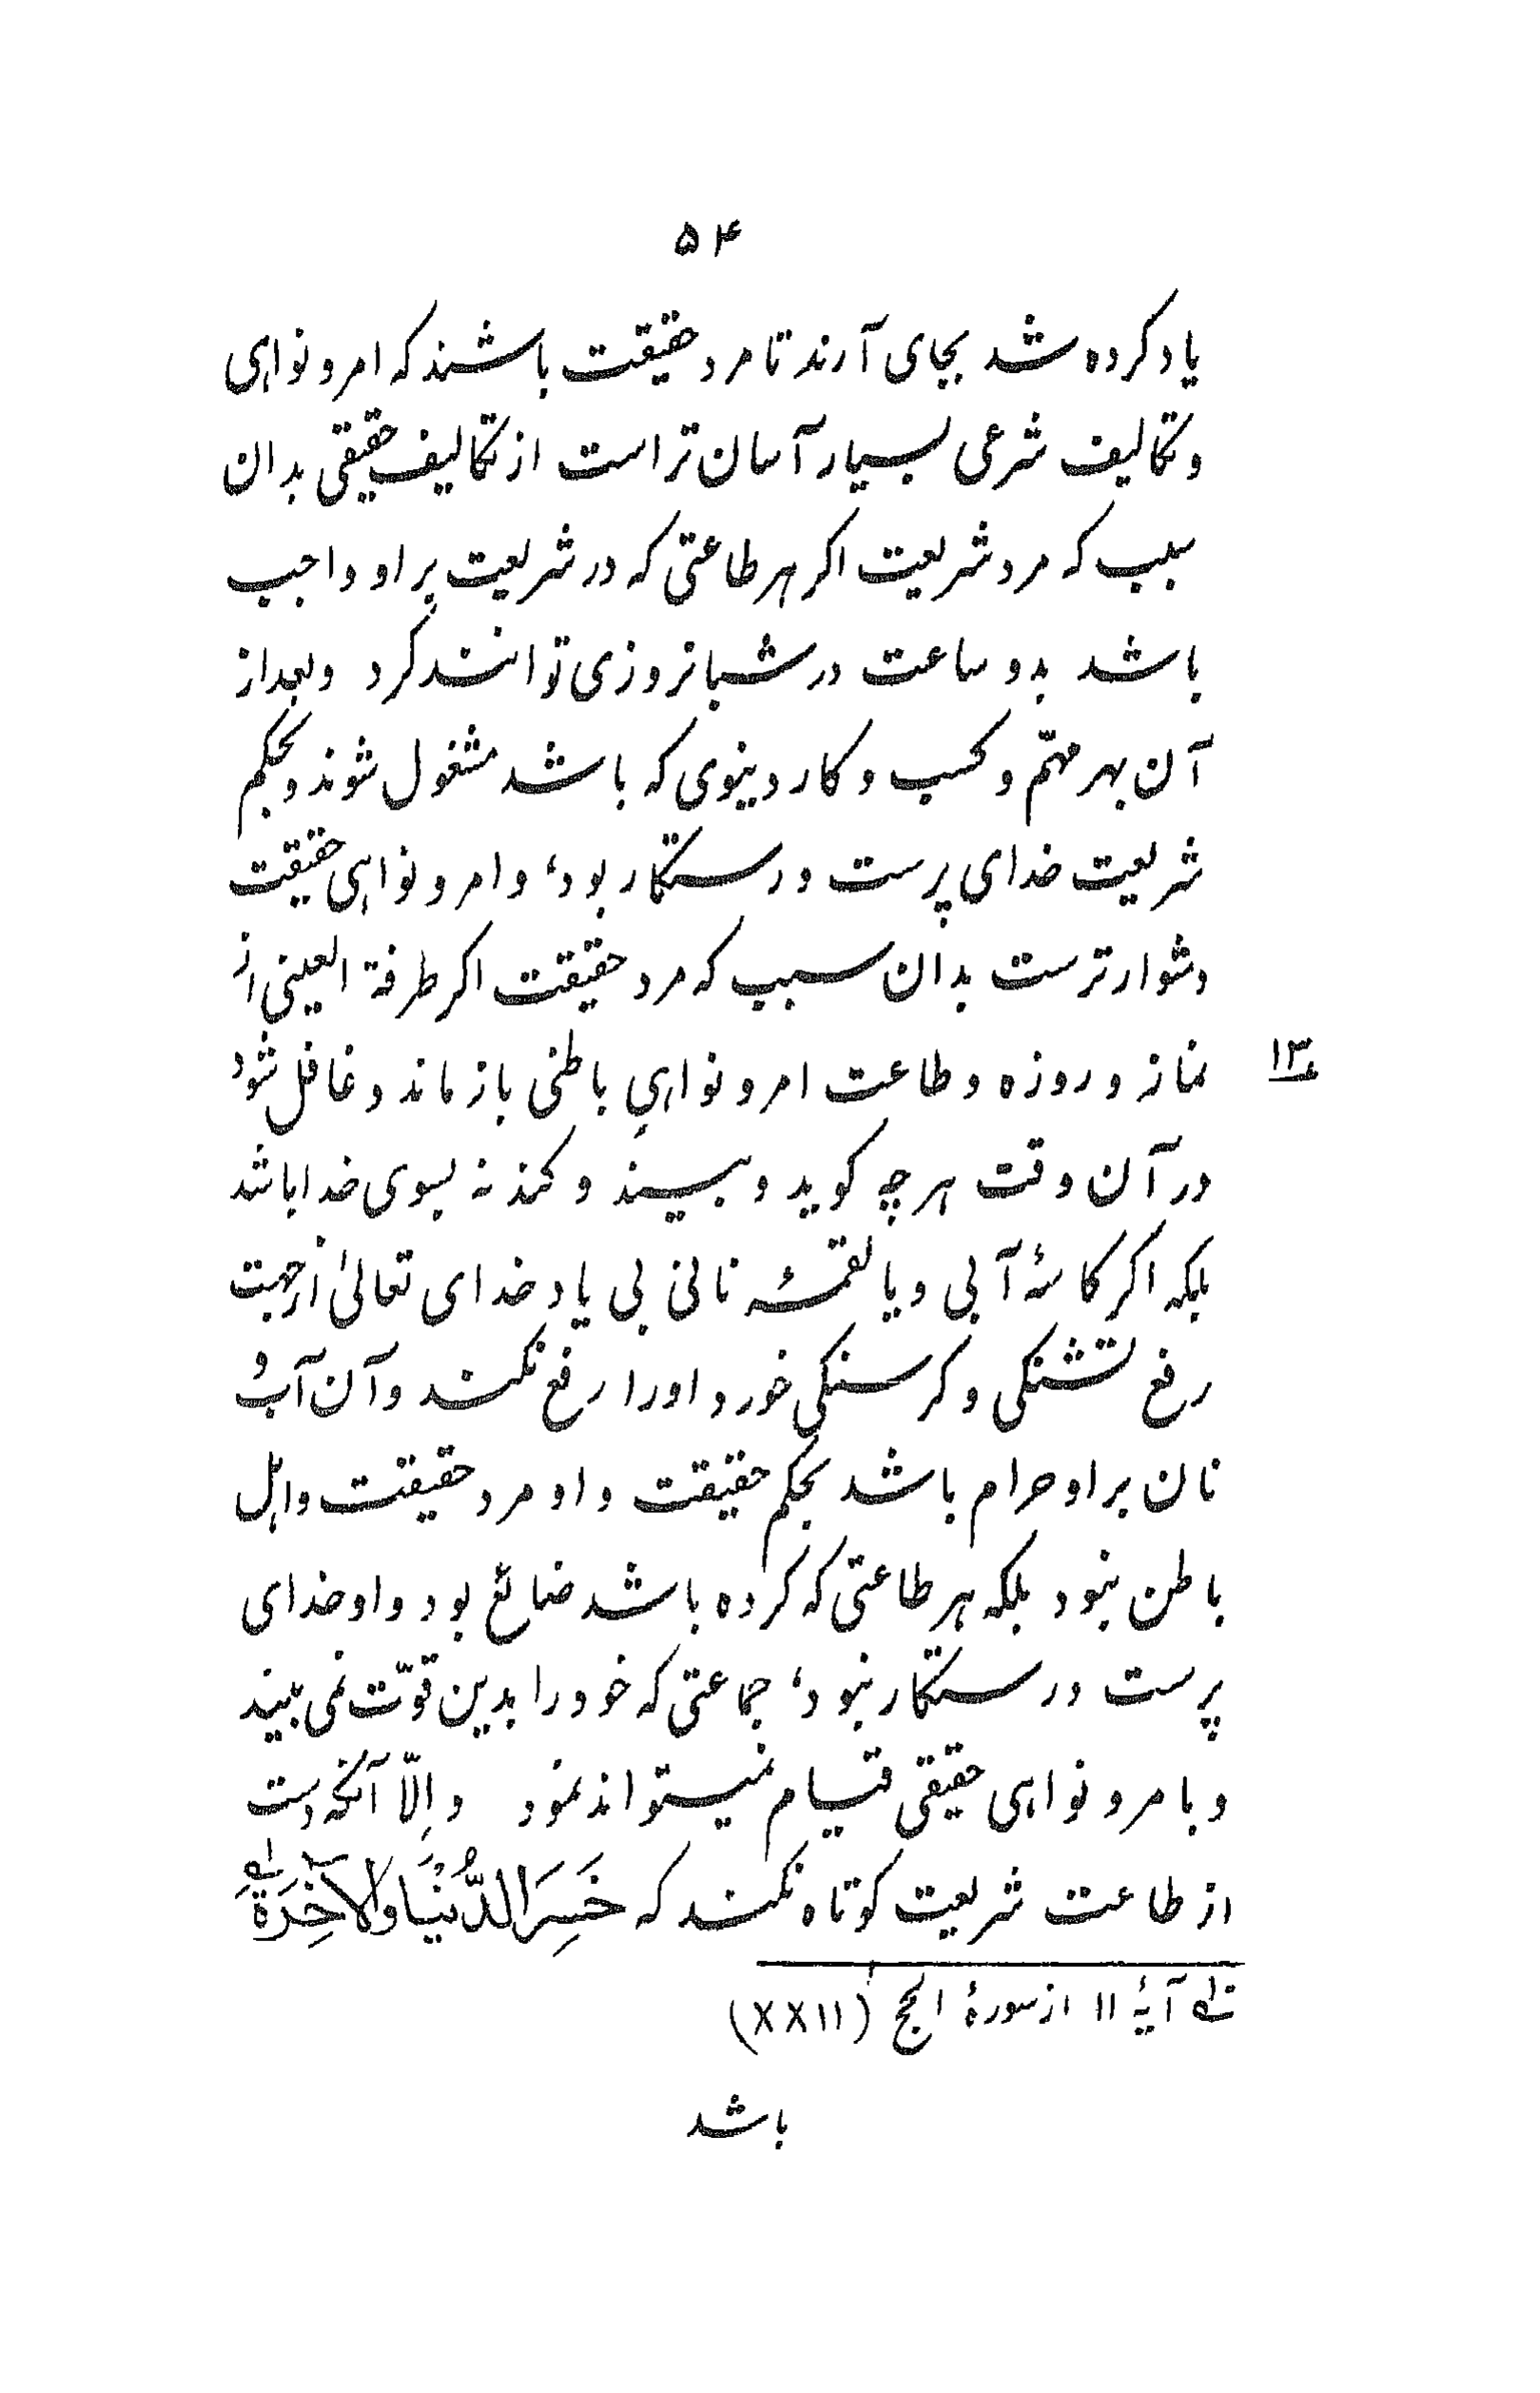 ۵۴
یاد کرده شد بجای آرند تا مرد حقیقت باشند که امر و نواهی
و تکالیف شرعی بسیار آسان تر است از تکالیف حقیقی بدان
سبب که مرد شریعت اکر هر طاعتی که در شریعت بر او واجب
باشد بدو ساعت در شبانروزی توانند کرد و بعد از
آن بهر مهمّ و کسب و کار دینوی که باشد مشغول شوند و بحکم
شریعت خدای پرست و رستکار بود، و امر و نواهی حقیقت
دشوارترست بدان سبب که مرد حقیقت اکر طرفة العینی از
نماز و روزه و طاعت امر و نواهیِ باطنی باز ماند و غافل شود
۱۳
در آن وقت هر چه کوید و بیند و کند نه بسوی خدا باشد
بلکه اکر کاسهٔ آبی و یا لقمهٔ نانی بی یاد خدای تعالیٰ از جهت
رفع تشنکی و کرسنکی خورد اورا رفع نکند و آن آب و
نان بر او حرام باشد بحکم حقیقت و او مرد حقیقت و اهل
باطن نبود بلکه هر طاعتی که کرده باشد ضائع بود و او خدای
پرست و رستکار نبود، جماعتی که خود را بدین قوّت نمی بیند
و بامر و نواهی حقیقی قیام نمیتواند نمود و اِلّا آنکه دست
از طاعت شریعت کوتاه نکند که خَسِرَ الدُّنْیَا وَالْآخِرَةَ
آیهٔ ۱۱ از سورهٔ الحج (XXII)
باشد